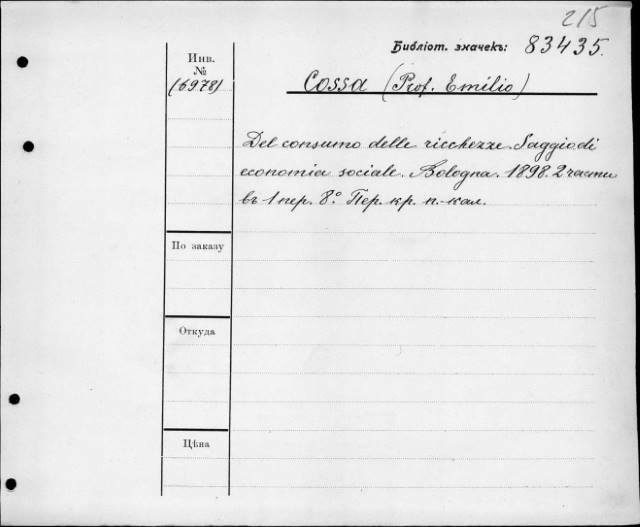 215
Библіот. значекъ: 83435.
Инв.
№
(6978)
Cossa (Prof. Emilio)
Del consumo delle ricchezze. Saggio di
economia sociale. Bologna. 1898. 2 части
въ 1 пер. 8° Пер. кр. п.-кал.
По заказу
Откуда
Цѣна